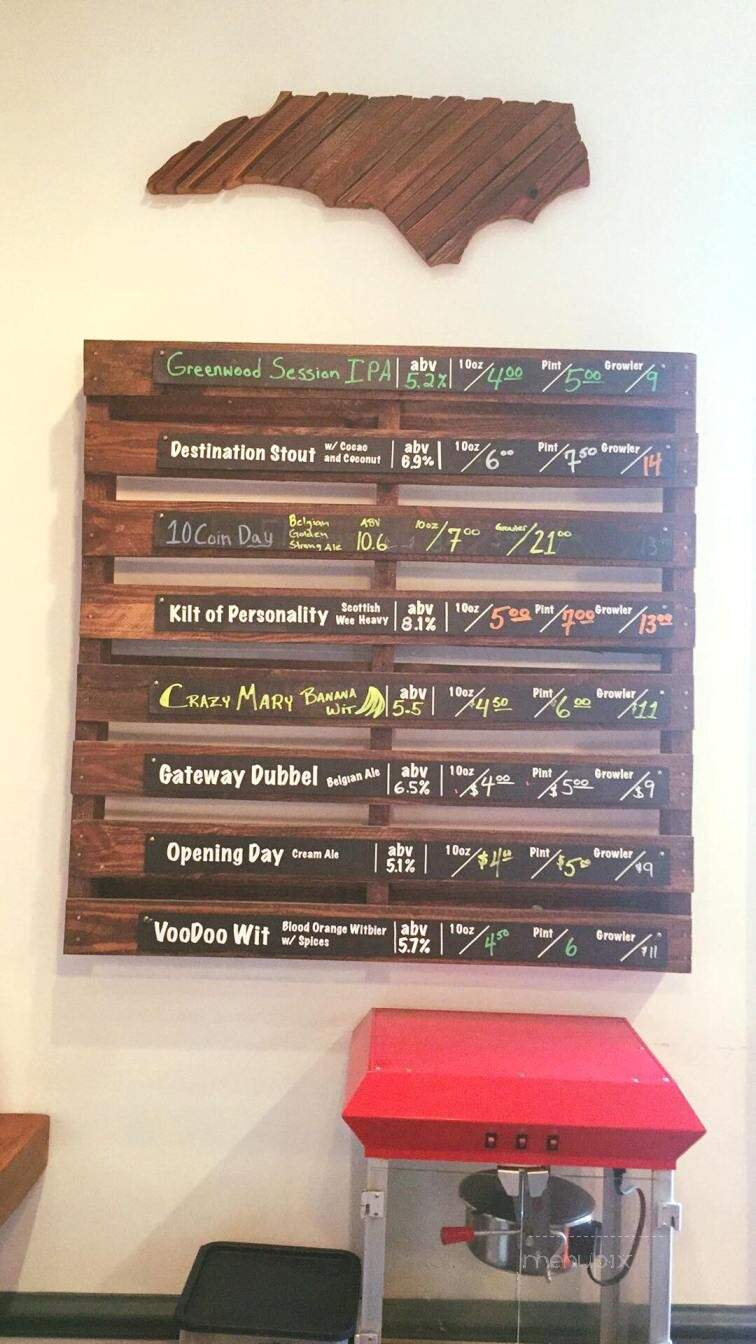 Greenwood Session IPA abv 5.2% 10oz/4.00 Pint/5.00 Growler/9
Destination Stout w/ Cocao and Coconut abv 6.9% 10oz/6.00 Pint/7.50 Growler/14
10 Coin Day Belgian Golden Strong Ale ABV 10.6 10oz/7.00 Growler/21.00
Kilt of Personality Scottish Wee Heavy abv 8.1% 10oz/5.00 Pint/7.00 Growler/13.00
Crazy Mary Banana Wit abv 5.5 10oz/$4.50 Pint/$6.00 Growler/$11
Gateway Dubbel Belgian Ale abv 6.5% 10oz/$4.00 Pint/$5.00 Growler/$9
Opening Day Cream Ale abv 5.1% 10oz/$4.00 Pint/$5.00 Growler/$9
VooDoo Wit Blood Orange Witbier w/ Spices abv 5.7% 10oz/4.50 Pint/6 Growler/$11
menupix